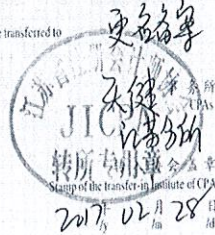 e transferred to
更名备案
江苏省注册会计师协会
天健
事务所
CPAs
JICPA
江苏分所
转所专用章
Stamp of the transfer-in Institute of CPA
2017年 02月 28日
/y /m /d